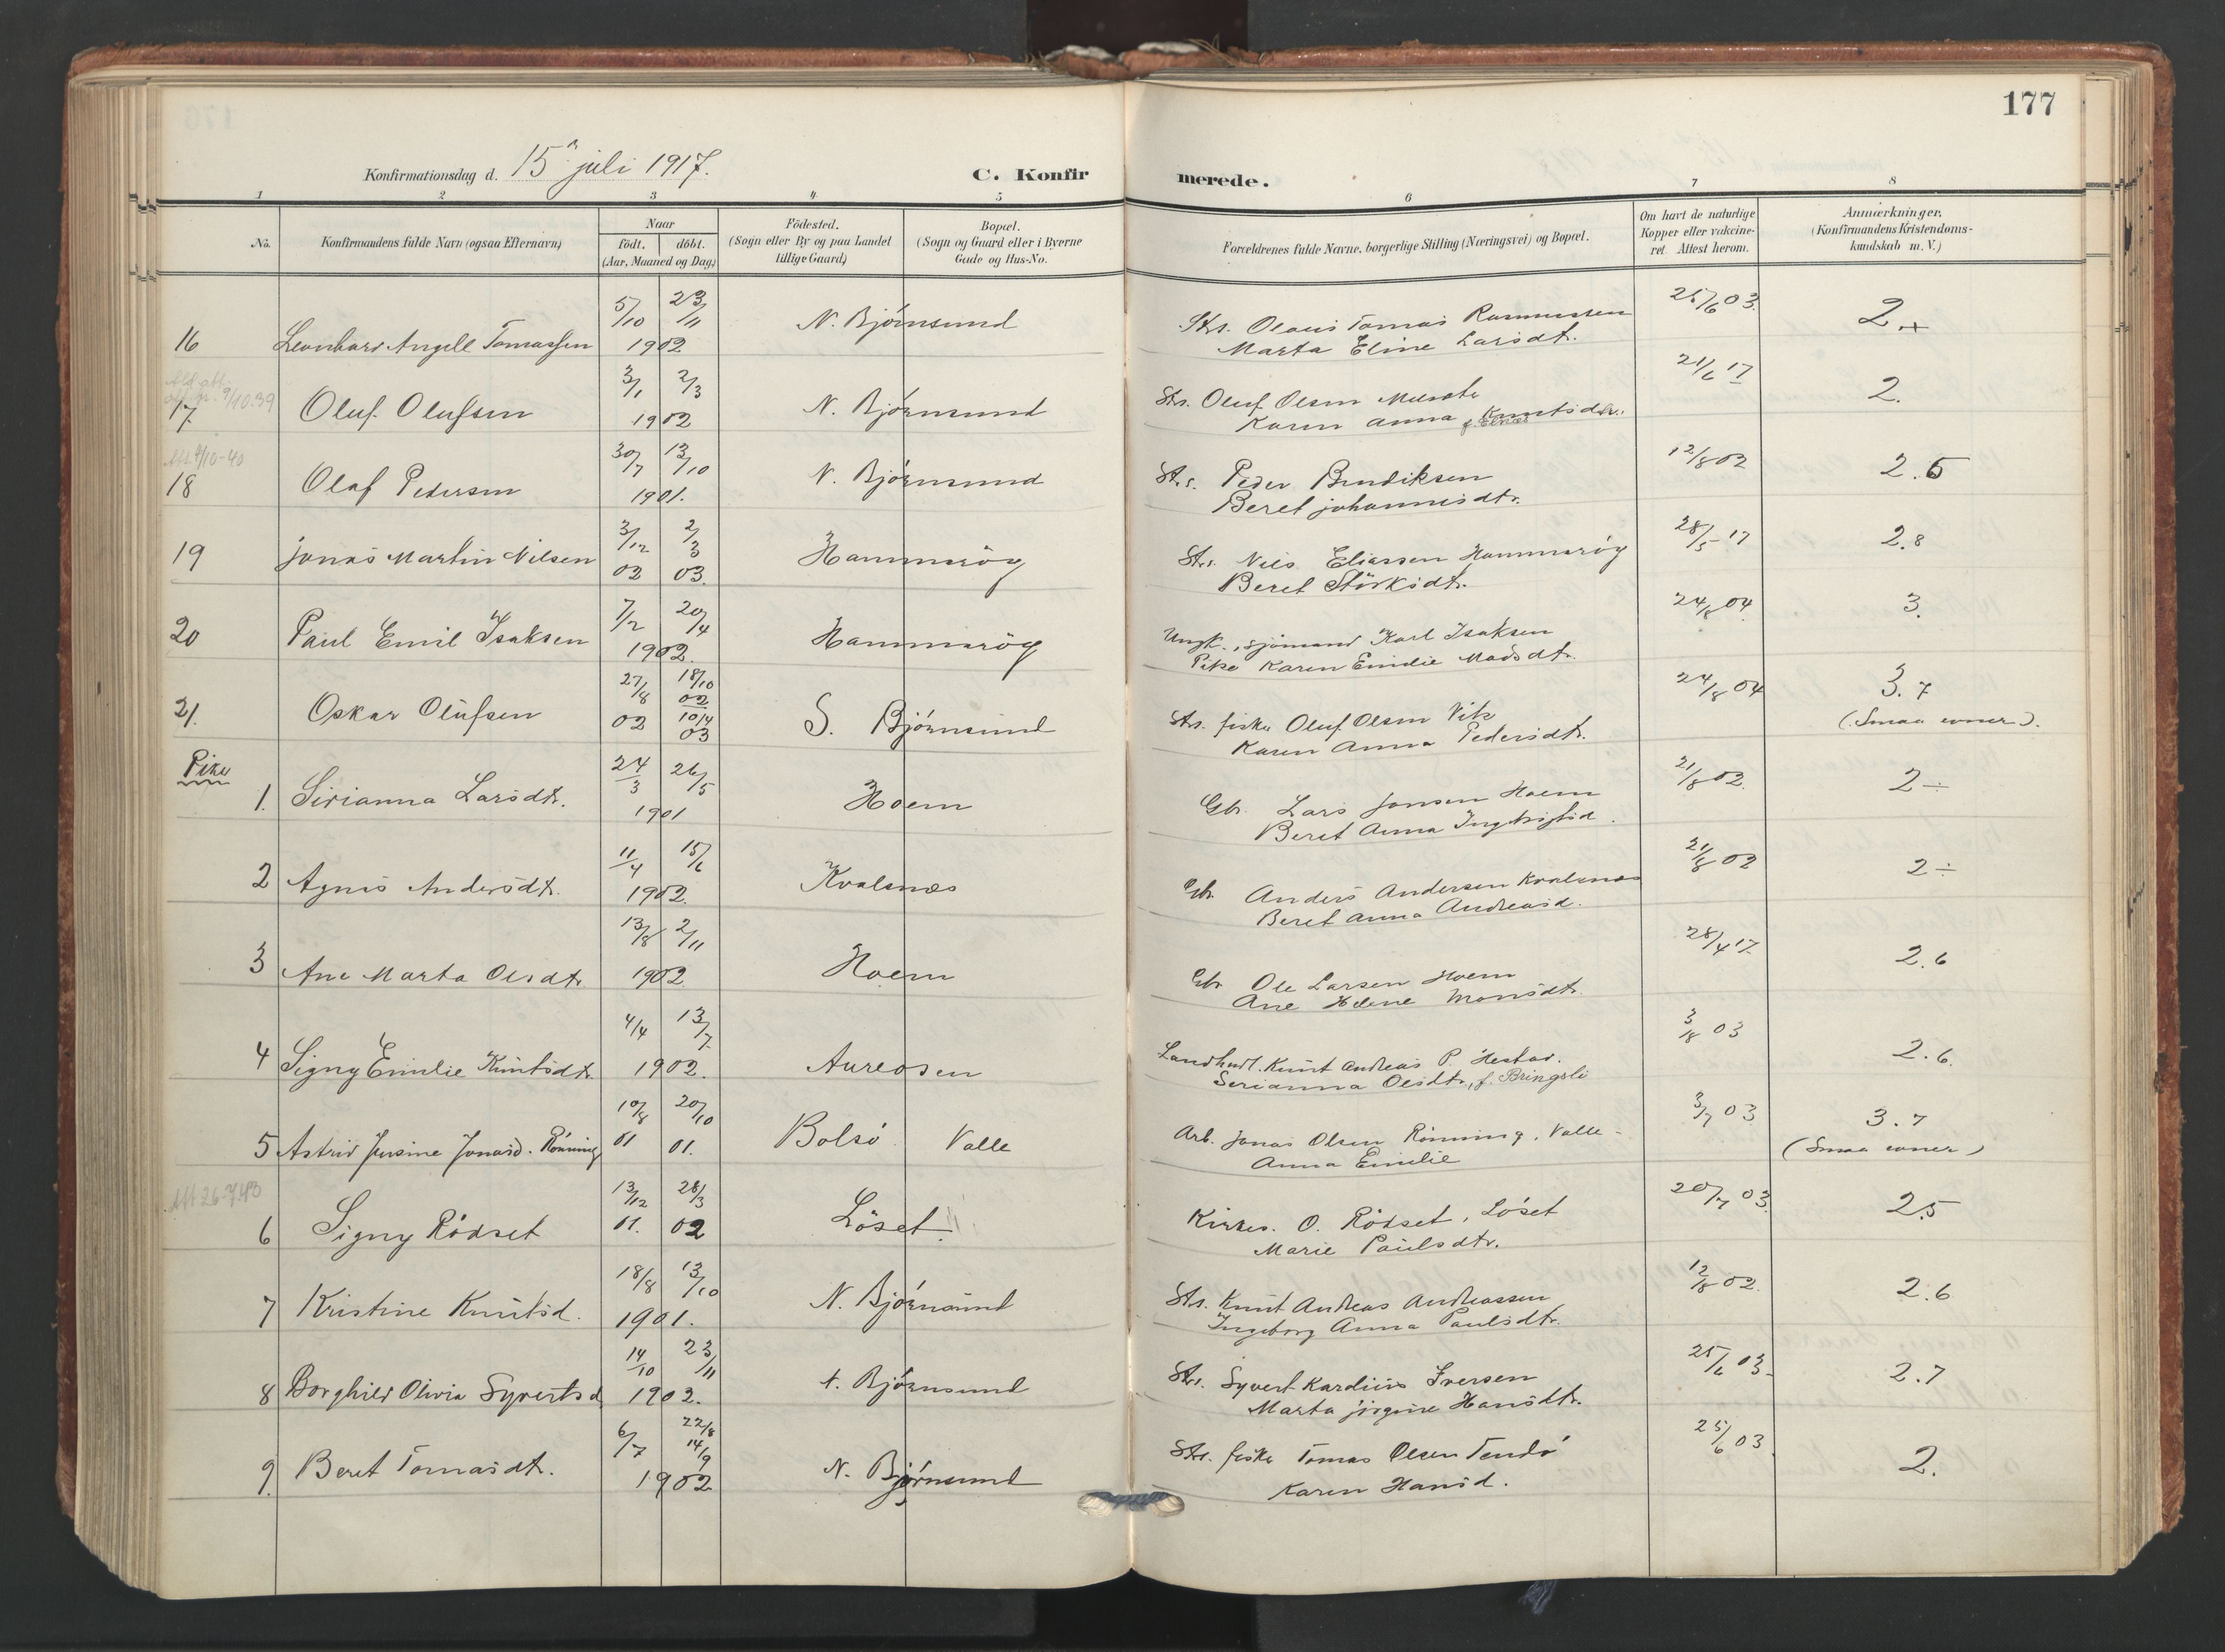 177
Konfirmationsdag d. 15n juli 1917.
C. Konfirmerede.
1 2 3 4 5 6 7 8
No. Konfirmandens fulde Navn (ogsaa Efternavn)
Naar
født. døbt.
(Aar, Maaned og Dag.)
Fødested.
(Sogn eller By og paa Landet
tillige Gaard)
Bopæl.
(Sogn og Gaard eller i Byerne
Gade og Hus-No.
Forældrenes fulde Navne, borgerlige Stilling (Næringsvei) og Bopæl.
Om havt de naturlige
Kopper eller vakcine-
ret. Attest herom.
Anmærkninger.
(Konfirmandens Kristendoms-
kundskab m. V.)
5/10 23/11 N. Bjørnsund Str. Olaus Tomas Rasmussen 25/6 03. 2.+
16 Leonhard Angell Tomassen 1902 Marta Eline Larsdt.
9/10.39 3/1 2/3 21/6 17
17. Oluf Olufsen 1902 N. Bjørnsund Str. Oluf Olsen 2.
Karen Anna Knutsdtr.
Att. 4/10-40 30/7 13/10 12/8 02
18 Olaf Pedersen 1901. N. Bjørnsund Str. Peder Bendiksen 2.5
Beret Johannesdtr.
3/12 2/3 28/5-17
19 Jonas Martin Nilsen 02 03. Hammerøy Str. Nils Eliassen Hammerøy 2.8
Beret Størksdtr.
7/2 20/4 24/8 04.
20 Paul Emil Isaksen 1902. Hammerøy Ungk., sjømand Karl Isaksen 3.
Pike Karen Emilie Madsdtr.
27/8 18/10 02 24/8 04
21. Oskar Olufsen 02 10/4 03 S. Bjørnsund Str. fisker Oluf Olsen Vik 3.7
Karen Anna Pedersdtr. (Smaa evner).
Piker
24/3 26/5 21/8 02.
1. Sirianna Larsdtr. 1901 Hoem Gbr. Lars Jonsen Hoem 2÷
Beret Anna Ingebrigtsd.
11/4 15/6 21/8 02
2 Agnes Andersdtr. 1902. Kvalsnes Gbr. Anders Andersen Kvalsnes 2÷
Beret Anna Andreasd.
13/8 2/11 28/4 17
3 Ane Marta Olsdtr. 1902. Hoem Gbr. Ole Larsen Hoem 2.6
Ane Helene Monsdtr.
4/4 13/7 3/8 03
4 Signy Emilie Knutsdtr. 1902. Aureosen Landhndl. Knut Andreas P. Hestad. 2.6.
Serianna Olsdtr., f. Bringsli
10/8 20/10 3/7 03
5 Astrid Jensine Jonasd. Rønning 01 01. Bolsø Valle Arb. Jonas Olsen Rønning, Valle- 3.7
Anna Emilie (Smaa evner)
Att 26.7.43 13/12 28/3 20/7 03.
6 Signy Rødset 01. 02 Løset. Kirkes. O. Rødset, Løset 2.5
Marie Paulsdtr.
18/8 13/10 12/8 02.
7 Kristine Knutsd. 1901. N. Bjørnsund Str. Knut Andreas Andreassen 2.6
Ingeborg Anna Paulsdtr.
14/10 23/11 25/6 03-
8 Borghild Olivia Syvertsd. 1902. N. Bjørnsund Str. Syvert Kardius Iversen 2.7
Marta Jørgine Hansdtr.
6/7 22/8 14/9 25/6 03
9. Beret Tomasdtr. 1902 N. Bjørnsund Str. fisker Tomas Olsen Tendø 2.
Karen Hansd.